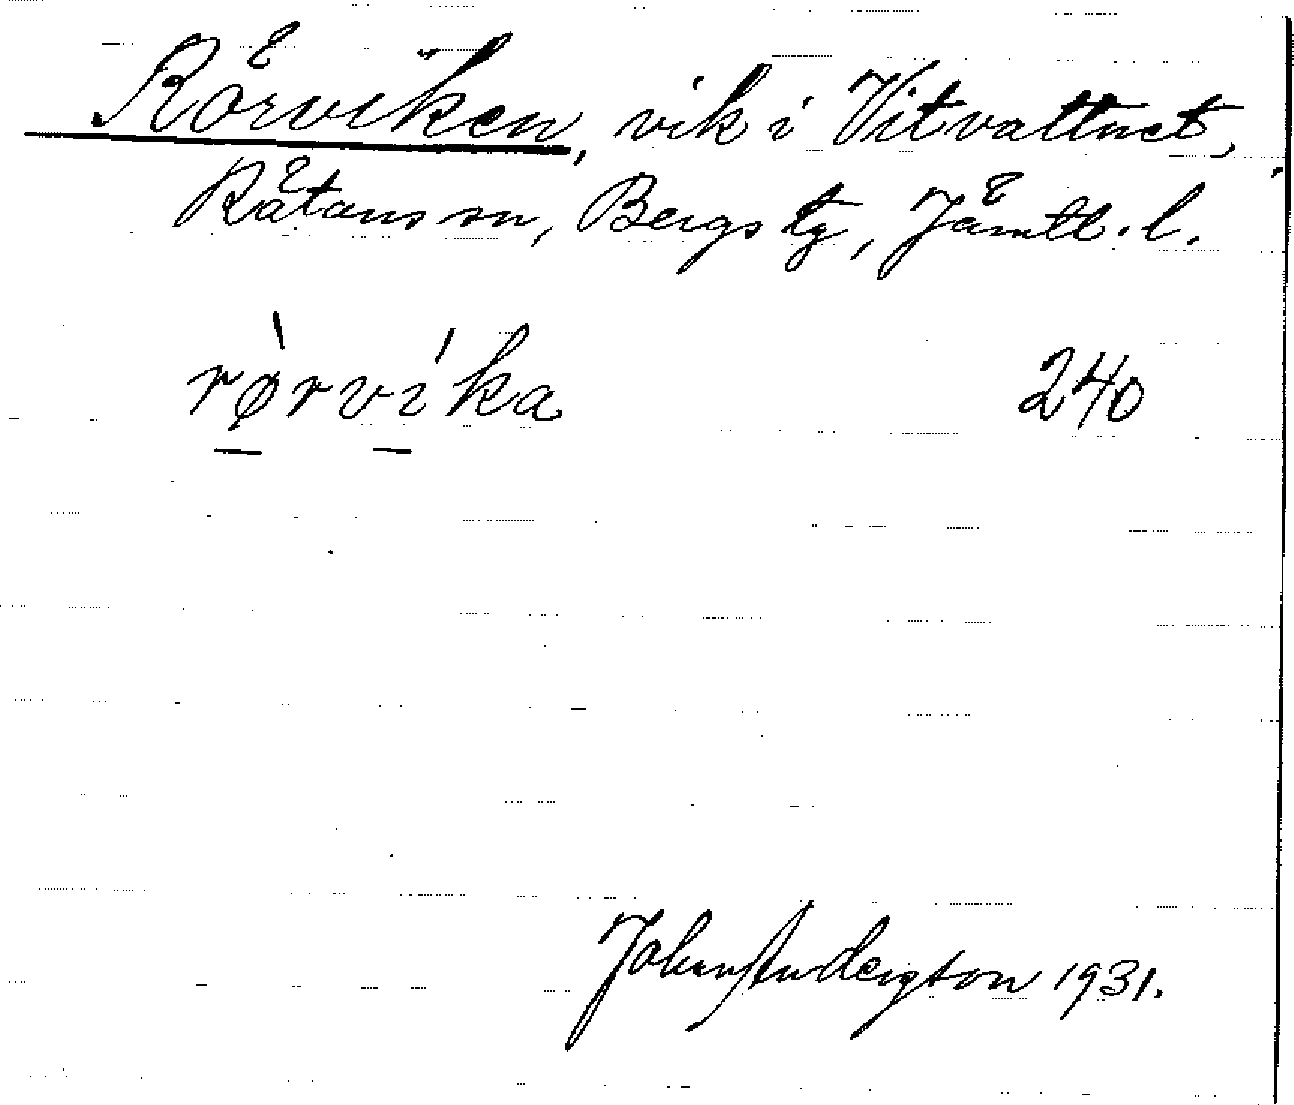 Rörviken, vik i Vitvattnet,
Rätans sn, Bergs tg, Jämtl. l.
rø̀rvíka 240
Johan 1931.